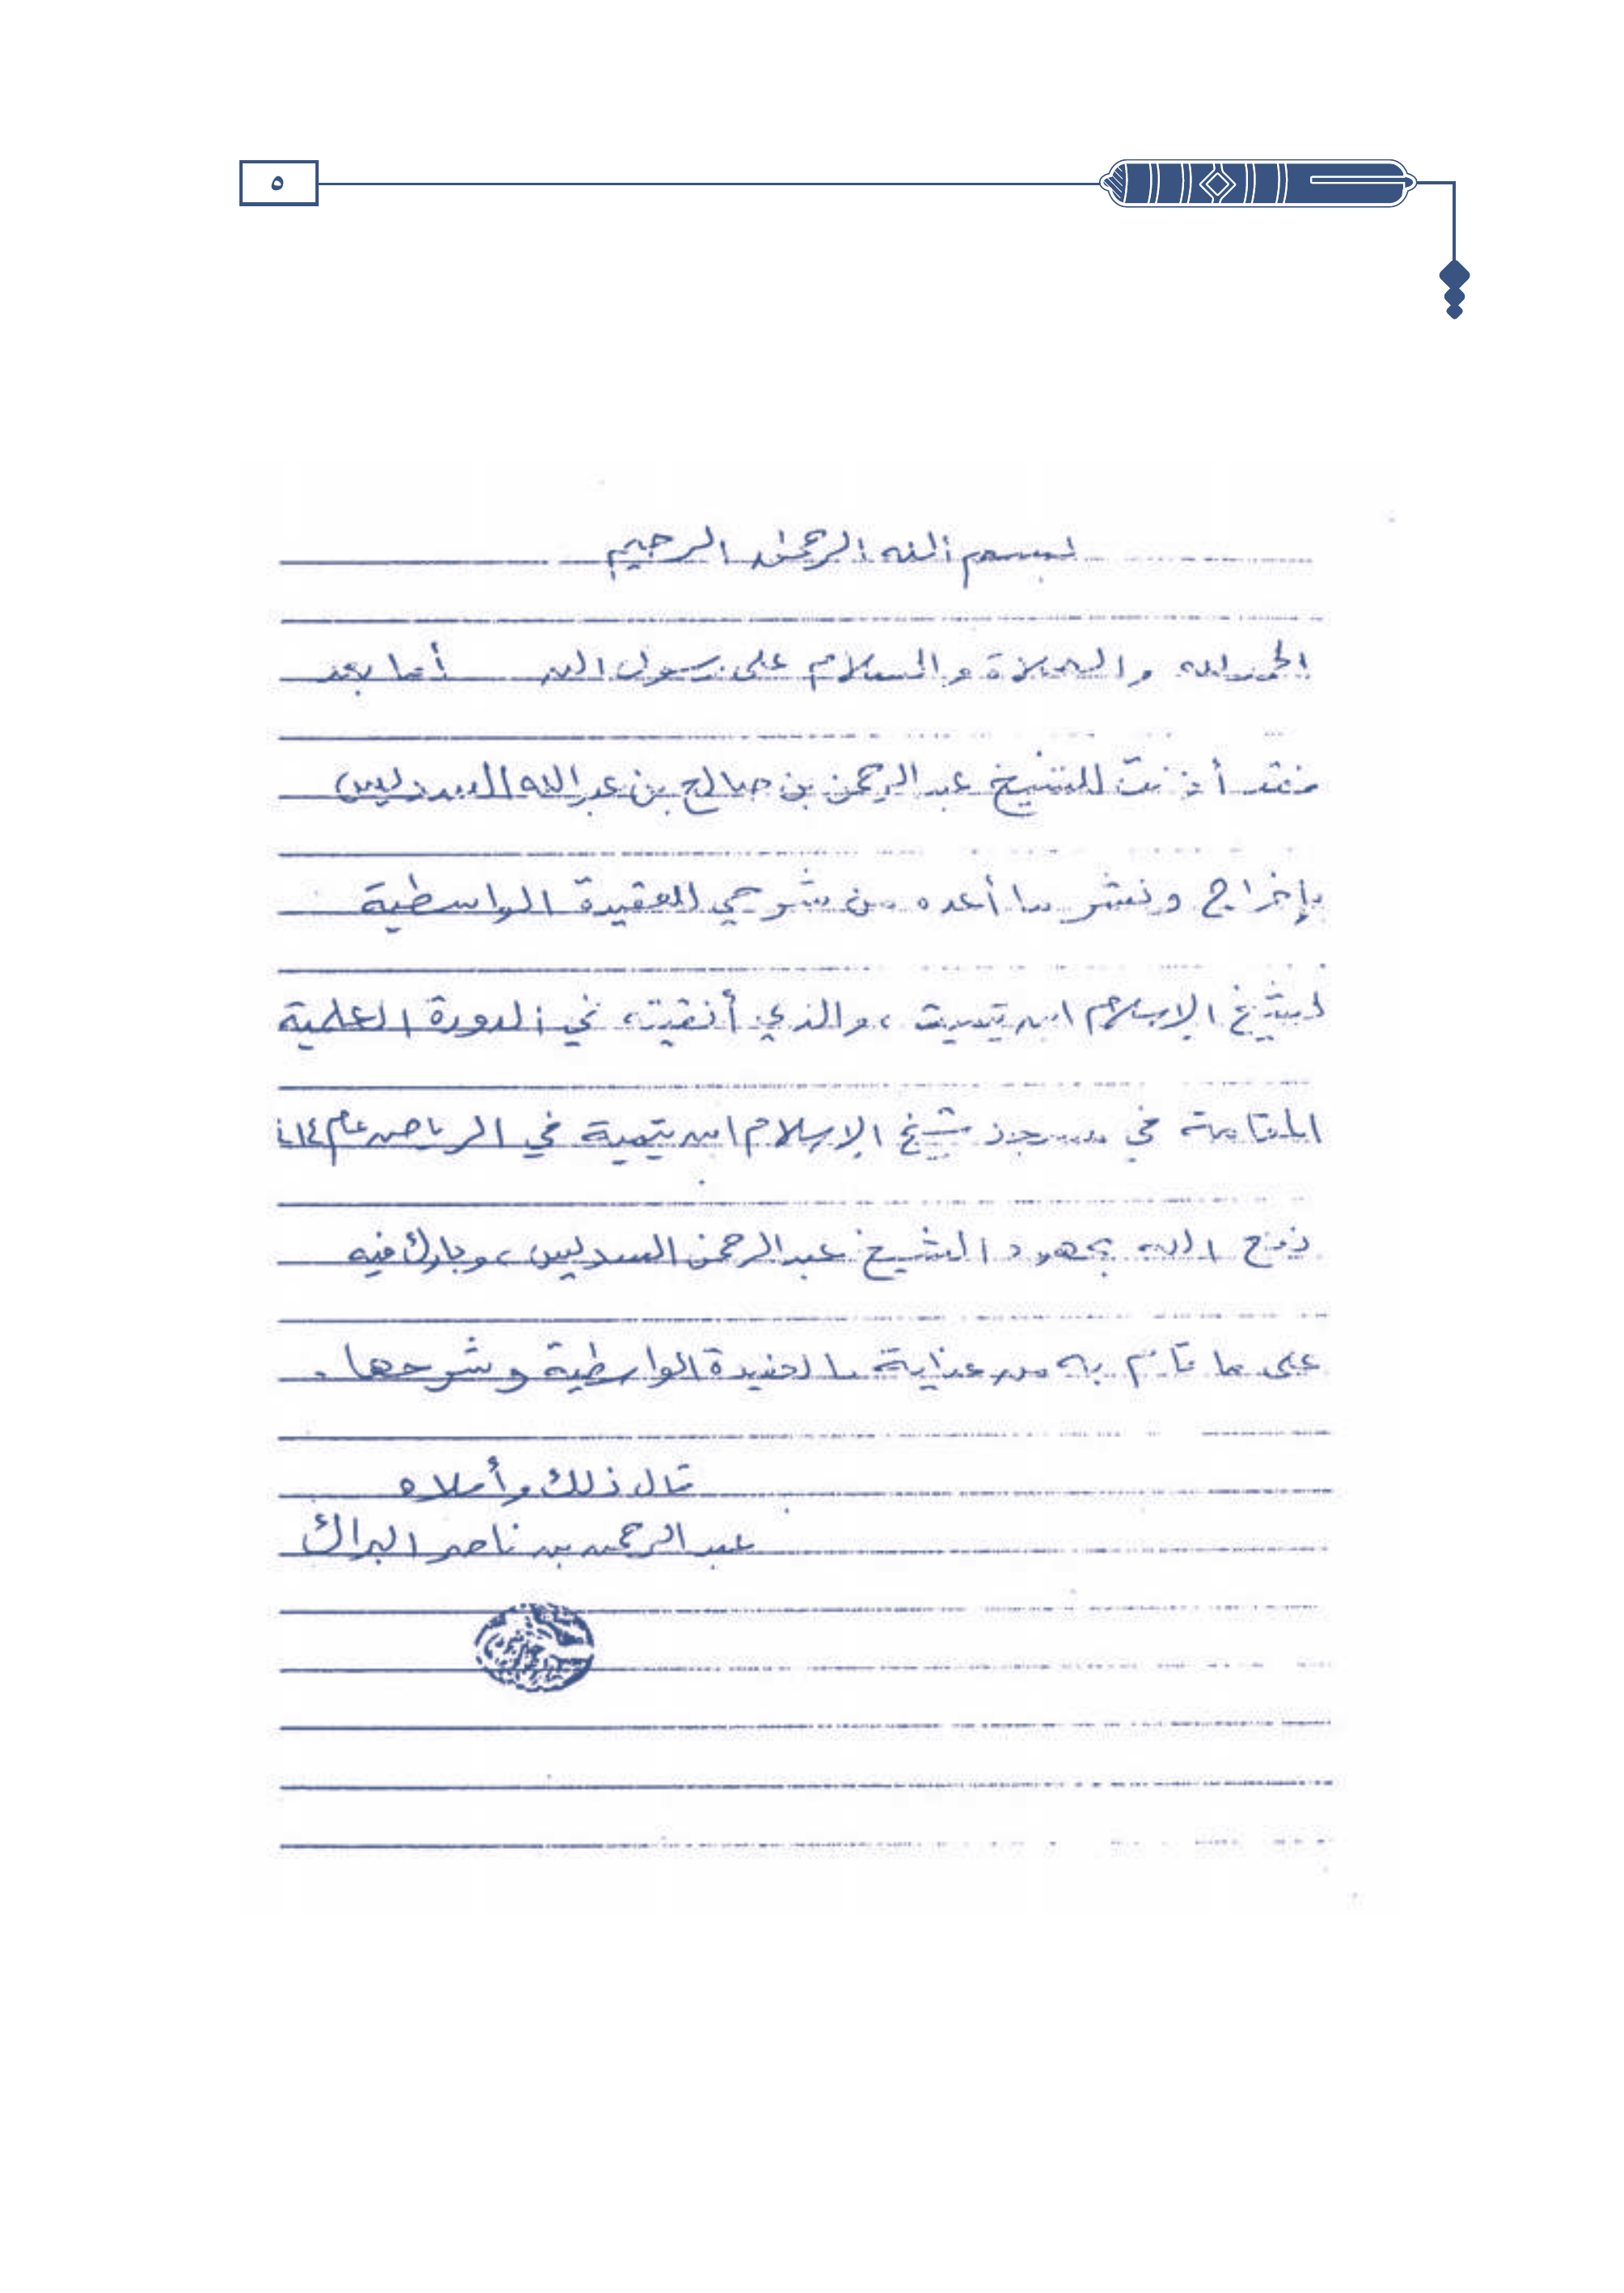 ٥
بسم الله الرحمن الرحيم
الحمد لله والصلاة والسلام على رسول الله أما بعد
فقد أذنت للشيخ عبدالرحمن بن صالح بن عبدالله السديس
بإخراج ونشر ما أعده من شرحي للعقيدة الواسطية
لشيخ الإسلام ابن تيمية، والذي ألقيته في الدورة العلمية
المقامة في مسجد شيخ الإسلام ابن تيمية في الرياض عام
نفع الله بجهود الشيخ عبدالرحمن السديس، وبارك فيه
على ما قام به من عناية بالعقيدة الواسطية وشرحها.
قال ذلك وأملاه
عبد الرحمن بن ناصر البراك